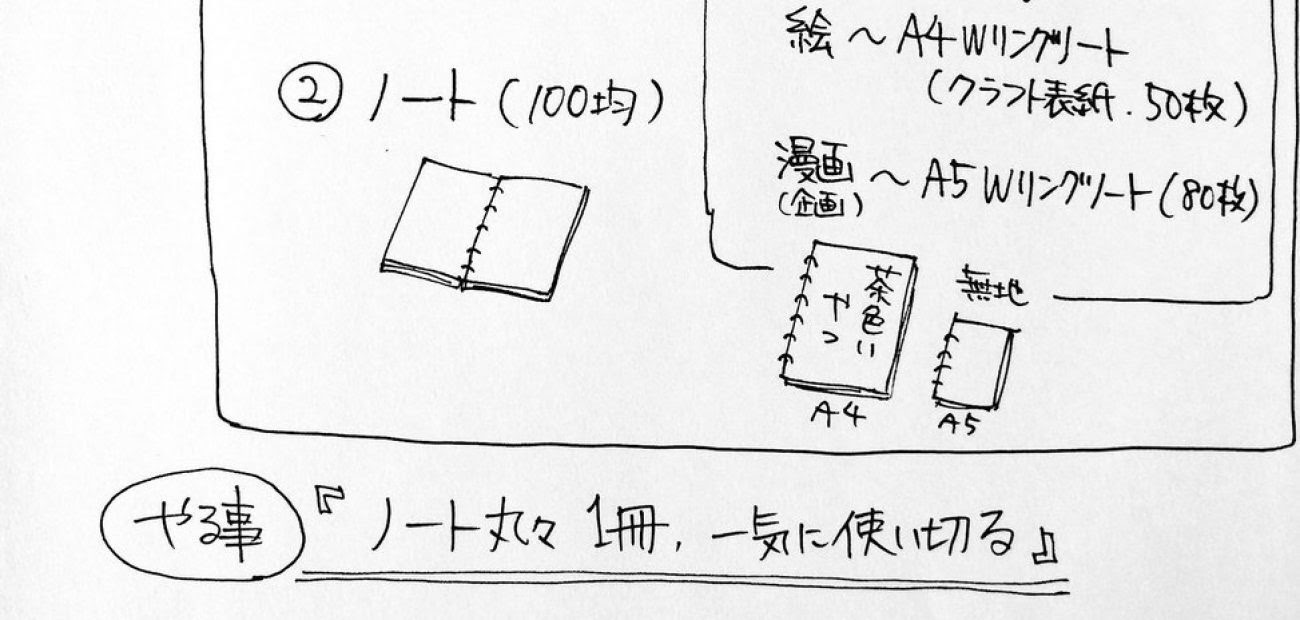 ② ノート(100均)
絵 〜 A4 Wリングノート
(クラフト表紙.50枚)
漫画 〜 A5 Wリングノート(80枚)
(企画)
茶色い
やつ
A4
無地
A5
やる事 『ノート丸々 1冊、一気に使い切る』